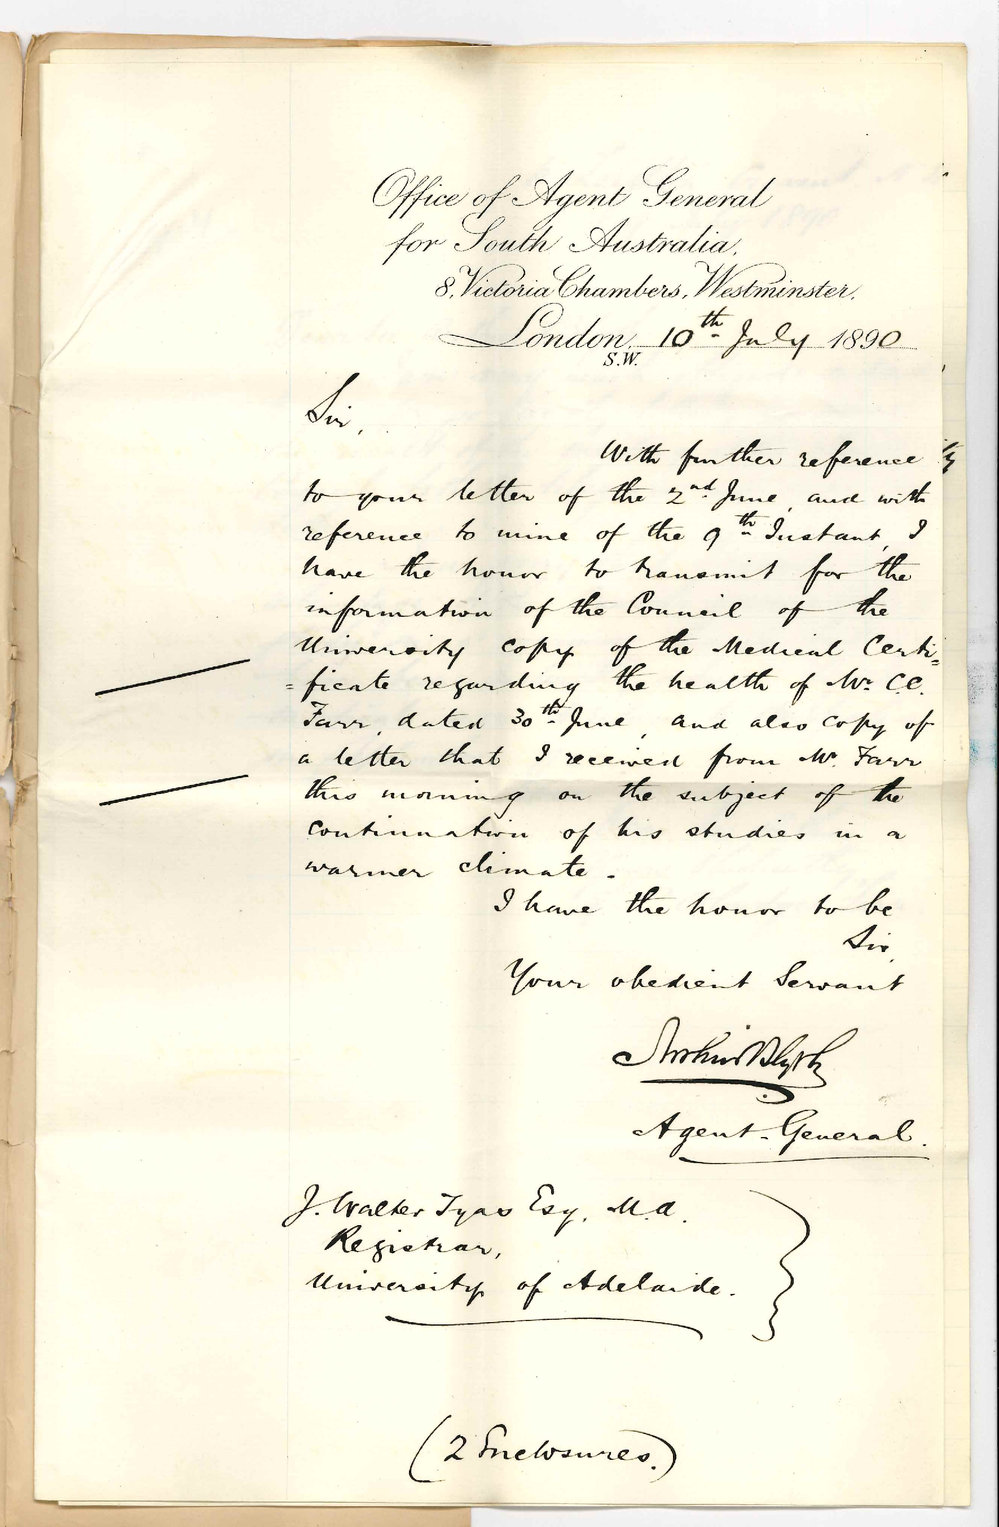 Office of Agent General
for South Australia,
8, Victoria Chambers, Westminster,
London, 10th July 1890
S.W.
Sir,
With further reference
to your letter of the 2nd June, and with
reference to mine of the 9th Instant, I
have the honor to transmit for the
information of the Council of the
University copy of the Medical Certi=
=ficate regarding the health of Mr. C.C.
Farr, dated 30th June, and also copy of
a letter that I received from Mr. Farr
this morning on the subject of the
continuation of his studies in a
warmer climate.
I have the honor to be
Sir,
Your obedient Servant
Arthur Blyth
Agent-General.
J. Walter Tyas Esq. M.A.
Registrar,
University of Adelaide.
(2 Enclosures.)